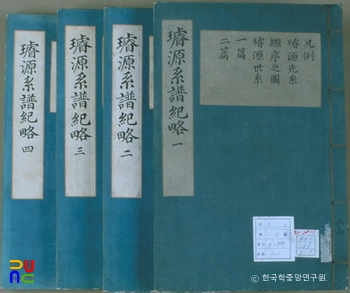 璿源系譜紀略 四
璿源系譜紀略 三
璿源系譜紀略 二
璿源系譜紀略 一
凡例
璿源先系
繼序之圖
璿源世系
一篇
二篇
© 한국학중앙연구원.